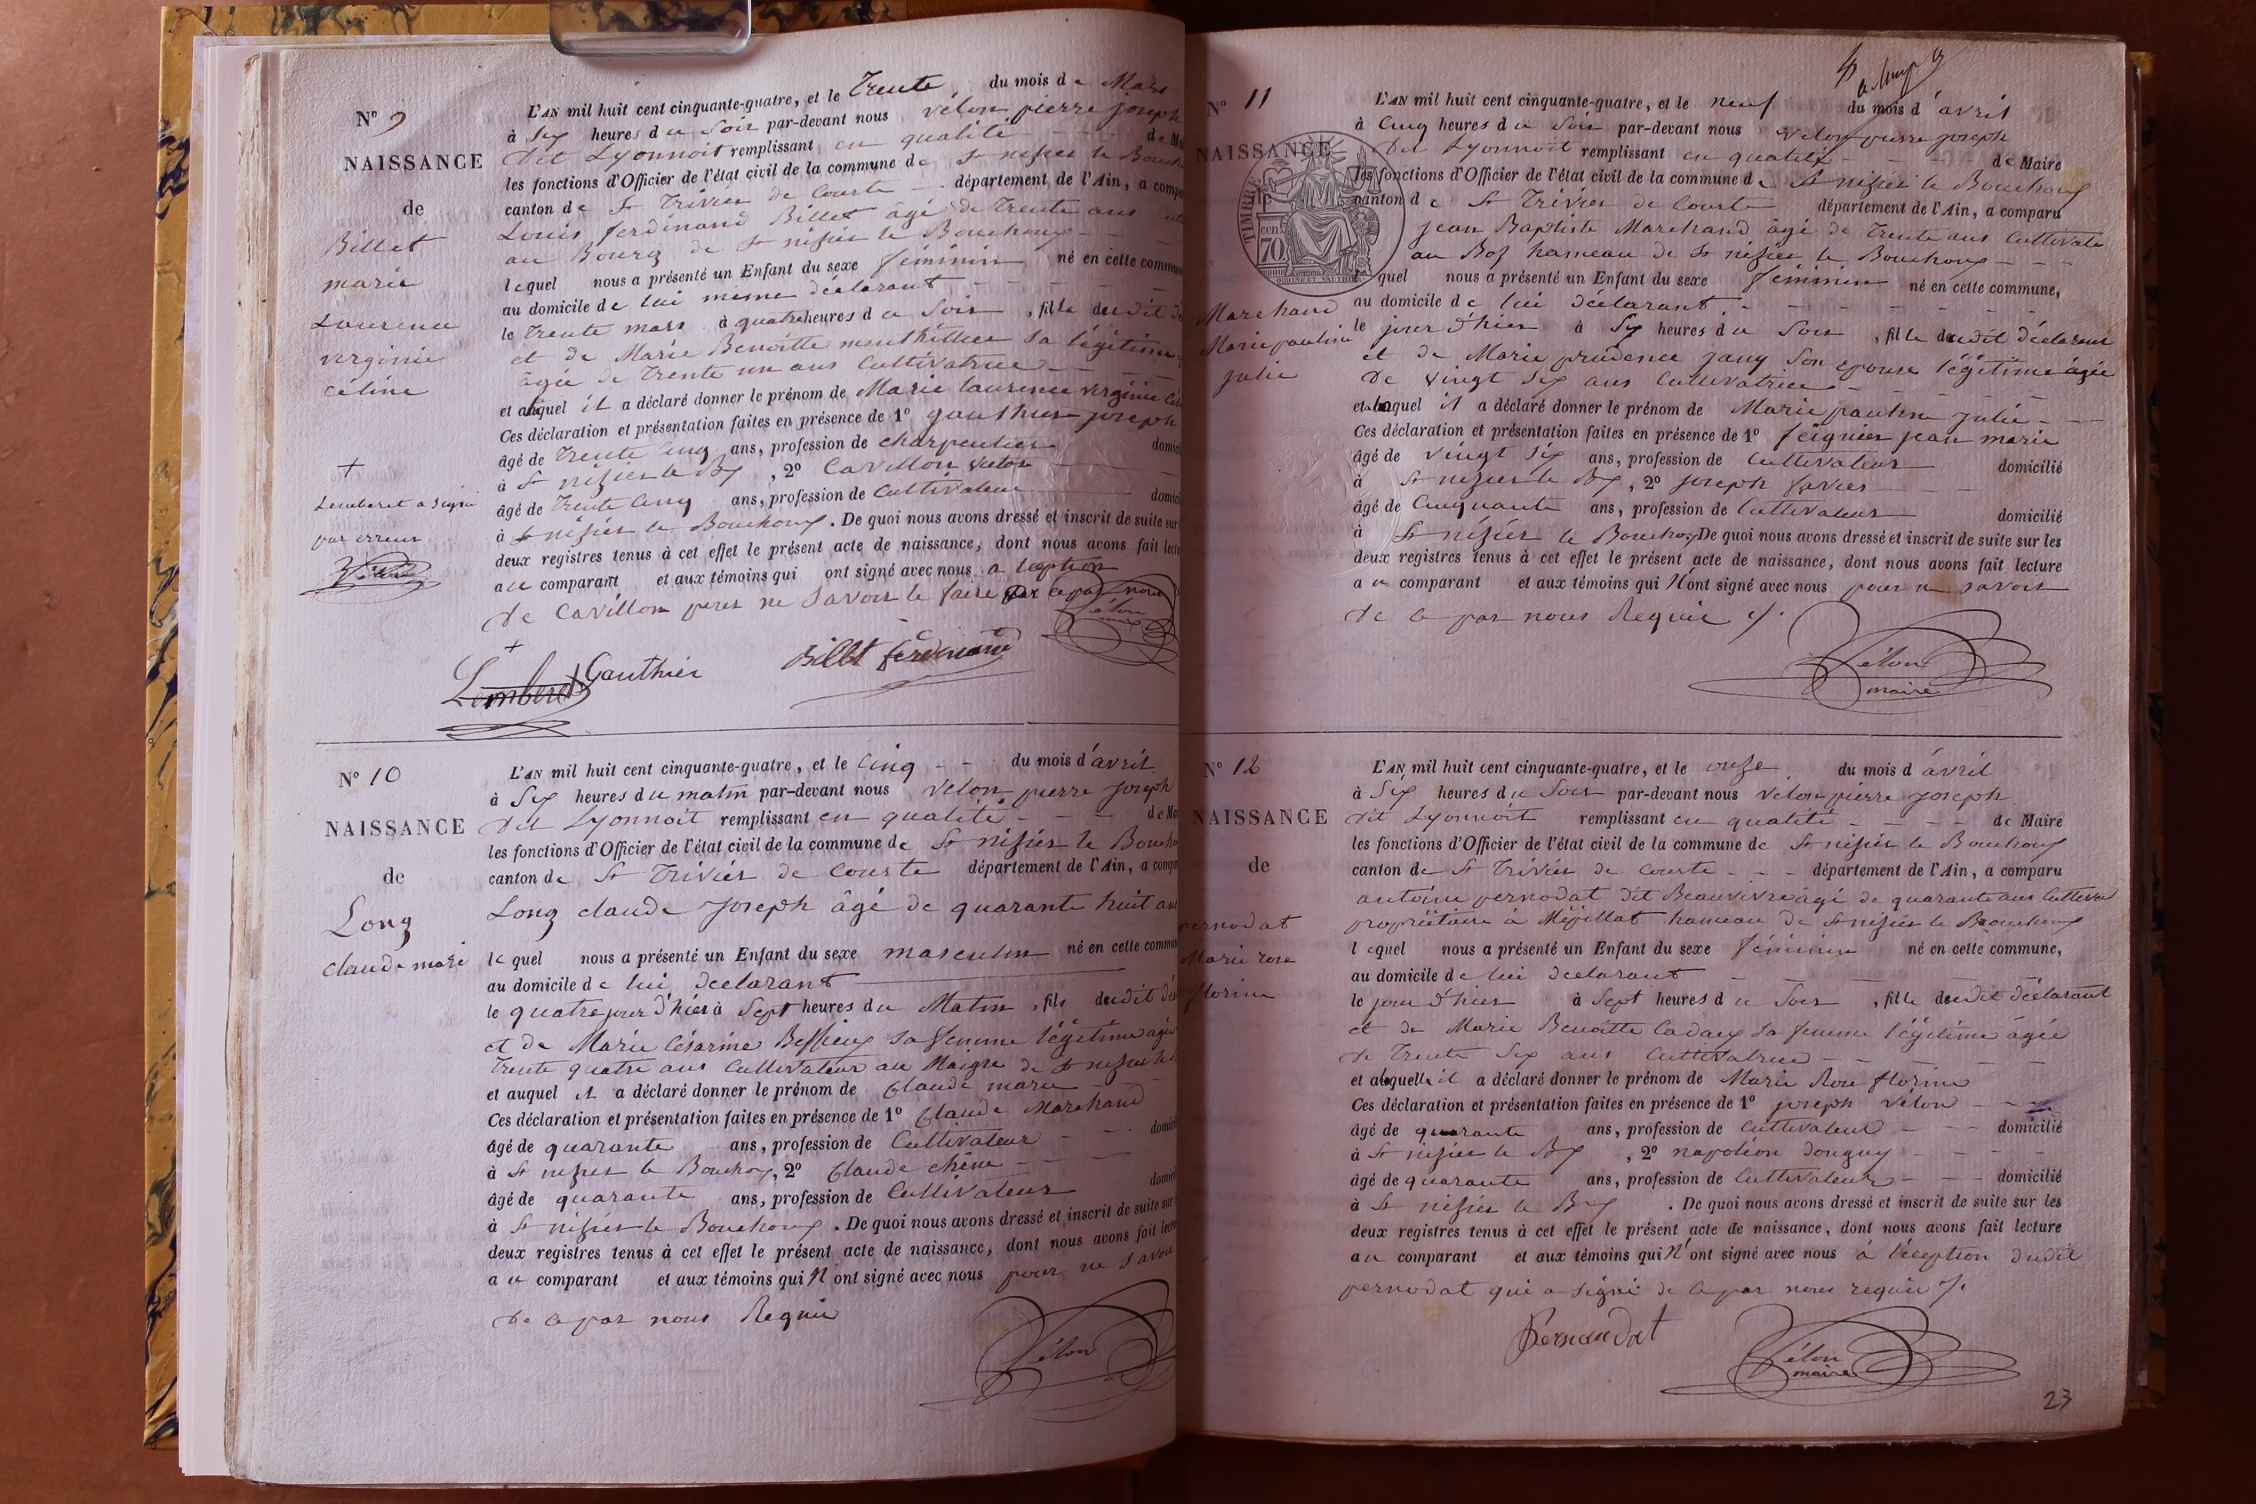 Nº 9
NAISSANCE
de
Billet
marie
Laurence
virginie
céline
+
Lemberet a signé
par erreur
L'AN mil huit cent cinquante-quatre, et le Trente du mois de Mars
à Six heures du Soir par-devant nous Vélon pierre joseph
dit Lyonnoit remplissant en qualité de
les fonctions d'Officier de l'état civil de la commune de St nisier le
canton de St Trivier de Courte département de l'Ain, a
Louis ferdinand Billet âgé de Trente ans
au Bourg de St nisier le Bouchoux
lequel nous a présenté un Enfant du sexe féminin né en cette
au domicile de lui même déclarant
le Trente mars à quatre heures du Soir, fille dudit
et de Marie Benoitte sa légitime
âgée de Trente un ans Cultivatrice
et auquel il a déclaré donner le prénom de Marie laurence virginie
Ces déclaration et présentation faites en présence de 1º gauthier joseph
âgé de Trente cinq ans, profession de charpentier
à St nizier le Bx, 2º Cavillon
âgé de Trente Cinq ans, profession de Cultivateur
à St nisier le Bouchoux. De quoi nous avons dressé et inscrit de suite sur
deux registres tenus à cet effet le présent acte de naissance, dont nous avons fait
au comparant et aux témoins qui ont signé avec nous a lexption
de Cavillon pour ne savoir le faire de ce par nous
Vélon
maire
+
Lemberet Gauthier Billet ferdinand
Nº 10
NAISSANCE
de
Long
claude marie
L'AN mil huit cent cinquante-quatre, et le Cinq du mois d'avril
à Six heures du matin par-devant nous Vélon pierre joseph
dit Lyonnoit remplissant en qualité de
les fonctions d'Officier de l'état civil de la commune de St nisier le
canton de St Trivier de Courte département de l'Ain, a
Long claude Joseph âgé de quarante huit
lequel nous a présenté un Enfant du sexe masculin né en cette
au domicile de lui déclarant
le quatre jour d'hier à Sept heures du Matin, fils dudit
et de Marie Césarine sa femme légitime âgée
Trente quatre ans Cultivateur au Maigre de St nisier le
et auquel il a déclaré donner le prénom de Claude marie
Ces déclaration et présentation faites en présence de 1º Claude Marchand
âgé de quarante ans, profession de Cultivateur
à St nizier le Bouchoux, 2º Claude chêne
âgé de quarante ans, profession de Cultivateur
à St nisier le Bouchoux. De quoi nous avons dressé et inscrit de suite sur
deux registres tenus à cet effet le présent acte de naissance, dont nous avons fait
au comparant et aux témoins qui N'ont signé avec nous pour ne savoir
de ce par nous Requis
Vélon
Nº 11
NAISSANCE
TIMBRE
70
Marchand
Marie pauline
julie
L'AN mil huit cent cinquante-quatre, et le neuf du mois d'avril
à Cinq heures du Soir par-devant nous Vélon pierre joseph
dit Lyonnoit remplissant en qualité de Maire
les fonctions d'Officier de l'état civil de la commune de St nisier le Bouchoux
canton de St Trivier de Courte département de l'Ain, a comparu
jean Baptiste Marchand âgé de Trente ans
au Bof hameau de St nisier le Bouchoux
lequel nous a présenté un Enfant du sexe féminin né en cette commune,
au domicile de lui déclarant
le jour d'hier à Six heures du Soir, fille dudit déclarant
et de Marie prudence jany Son épouse légitime âgée
de vingt Six ans Cultivatrice
et a laquel il a déclaré donner le prénom de Marie pauline julie
Ces déclaration et présentation faites en présence de 1º feignier jean marie
âgé de vingt Six ans, profession de Cultivateur domicilié
à St nizier le Bx, 2º joseph favier
âgé de Cinquante ans, profession de Cultivateur domicilié
à St nisier le Bouchoux De quoi nous avons dressé et inscrit de suite sur les
deux registres tenus à cet effet le présent acte de naissance, dont nous avons fait lecture
au comparant et aux témoins qui N'ont signé avec nous pour ne savoir
de ce par nous Requis
Vélon
maire
Nº 12
NAISSANCE
de
pernodat
Marie rose
florine
L'AN mil huit cent cinquante-quatre, et le onze du mois d'avril
à Six heures du Soir par-devant nous Vélon pierre joseph
dit Lyonnoit remplissant en qualité de Maire
les fonctions d'Officier de l'état civil de la commune de St nisier le Bouchoux
canton de St Trivier de Courte département de l'Ain, a comparu
antoine pernodat dit Beauvivre âgé de quarante ans
propriétaire à Mépillat hameau de St nisier le Bouchoux
lequel nous a présenté un Enfant du sexe féminin né en cette commune,
au domicile de lui déclarant
le jour d'hier à Sept heures du Soir, fille dudit déclarant
et de Marie Benoitte Cadaux sa femme légitime âgée
de Trente Six ans Cultivatrice
et a laquelle il a déclaré donner le prénom de Marie Rose florine
Ces déclaration et présentation faites en présence de 1º joseph Vélon
âgé de quarante ans, profession de Cultivateur domicilié
à St nisier le Bx, 2º napoléon donguy
âgé de quarante ans, profession de Cultivateur domicilié
à St nisier le Bx. De quoi nous avons dressé et inscrit de suite sur les
deux registres tenus à cet effet le présent acte de naissance, dont nous avons fait lecture
au comparant et aux témoins qui N'ont signé avec nous à l'éception dudit
pernodat qui a signé de ce par nous requis
Pernaudat
Vélon
maire
23